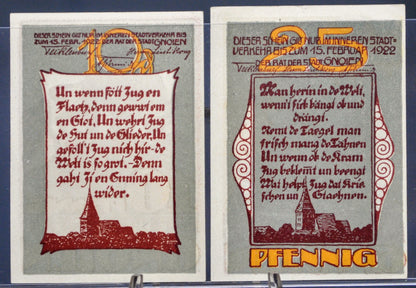 DIESER SCHEIN GILT NUR IM INNEREN STADTVERKEHR BIS
ZUM 15. FEBR. 1922. DER RAT DER STADT GNOIEN
10
Un wenn föit Jug en
Plaetz, denn gewwt em
en Stot. Un wehrl Jug
de Sut un de Glieder. Un
geföll't Jug nich hir- de
Welt is so grot. - Denn
gaht Ji en Gnning lang
wider.
DIESER SCHEIN GILT NUR IM INNEREN STADT-
VERKEHR BIS ZUM 15. FEBRUAR 1922
DER RAT DER STADT GNOIEN
25
Man herin in de Welt,
wenn's sick bängt un
drängt.
Nemt de Taegel man
frisch mang de Tähnen
Un wenn ob de Kram
Jug beklemt un beengt
Mai helpt Jug dat Krie-
schen un Staehnen.
PFENNIG